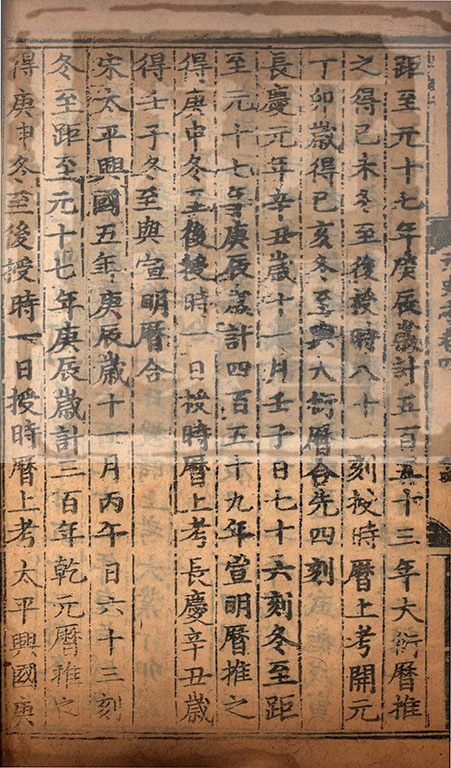 距至元十七年庚辰歲計五百五十三年大衍曆推
之得已未冬至後授時八十一刻授時曆上考開元
丁卯歲得已亥冬至與大衍曆合先四刻
長慶元年辛丑歲十一月壬子日七十六刻冬至距
至元十七年庚辰歲計四百五十九年宣明曆推之
得庚申冬至後授時一日授時曆上考長慶辛丑歲
得壬子冬至與宣明曆合
宋太平興國五年庚辰歲十一月丙午日六十三刻
冬至距至元十七年庚辰歲計三百年乾元曆推之
得庚申冬至後授時一日授時曆上考太平興國庚